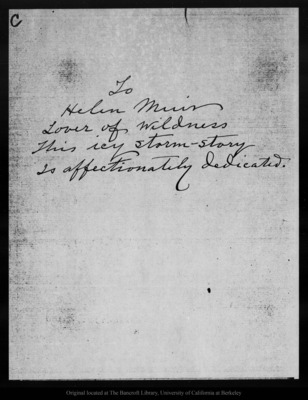 C
To
Helen Muir
Lover of wildness
This icy storm-story
Is affectionately dedicated.
Original located at The Bancroft Library, University of California at Berkeley